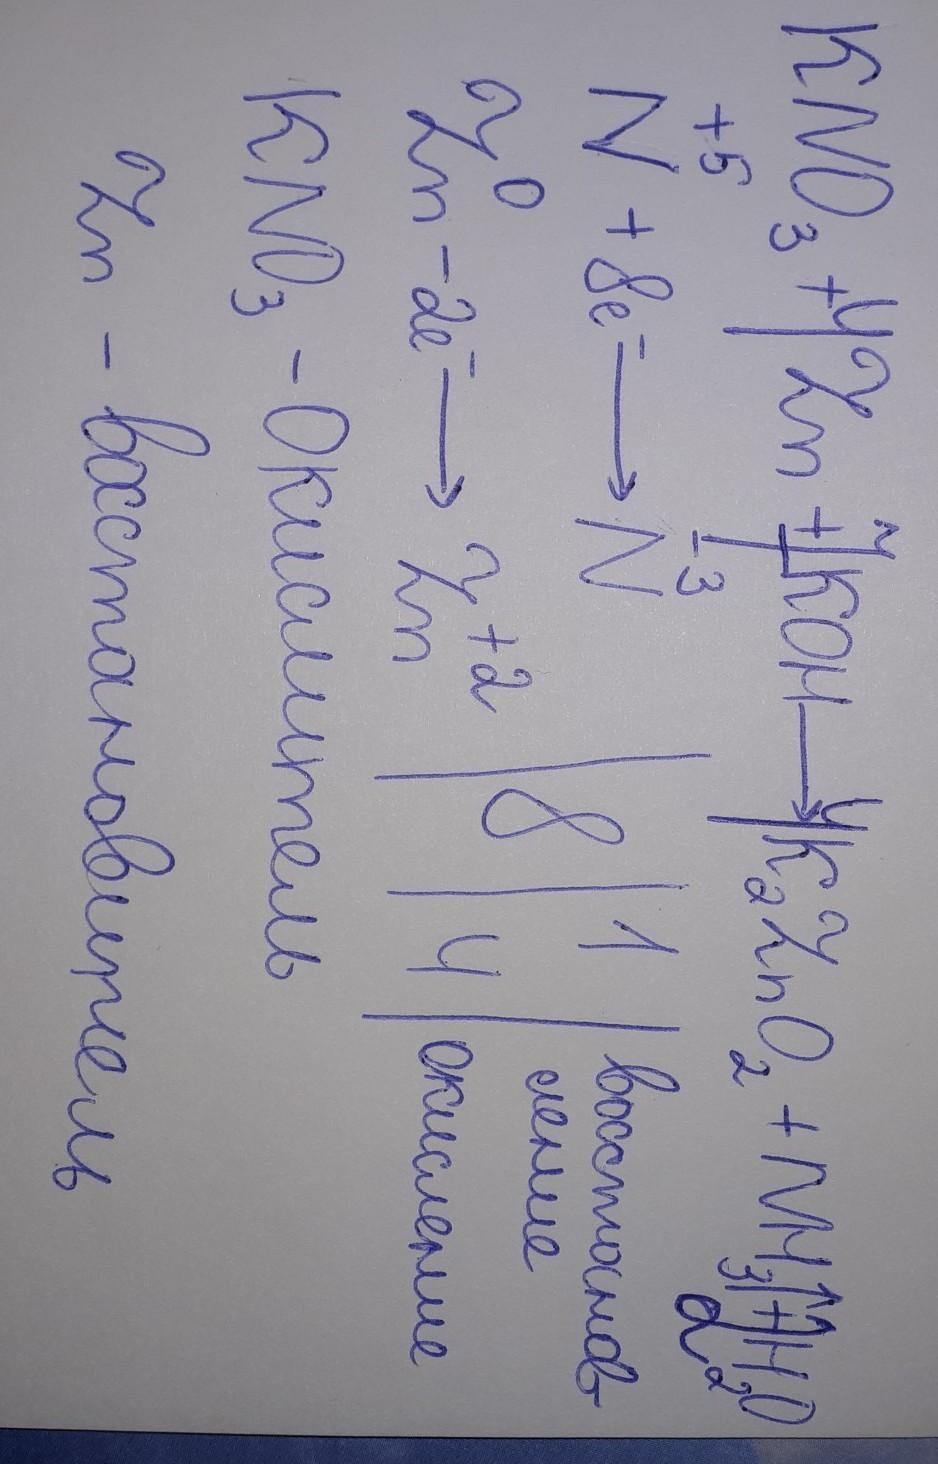 KNO₃ + 4Zn + 7KOH → 4K₂ZnO₂ + NH₃↑ + 2H₂O
N⁺⁵ + 8e⁻ → N⁻³ | 8 | 1 | восстанов
ление
Zn⁰ - 2e⁻ → Zn⁺² | 4 | окисление
KNO₃ - Окислитель
Zn - восстановитель